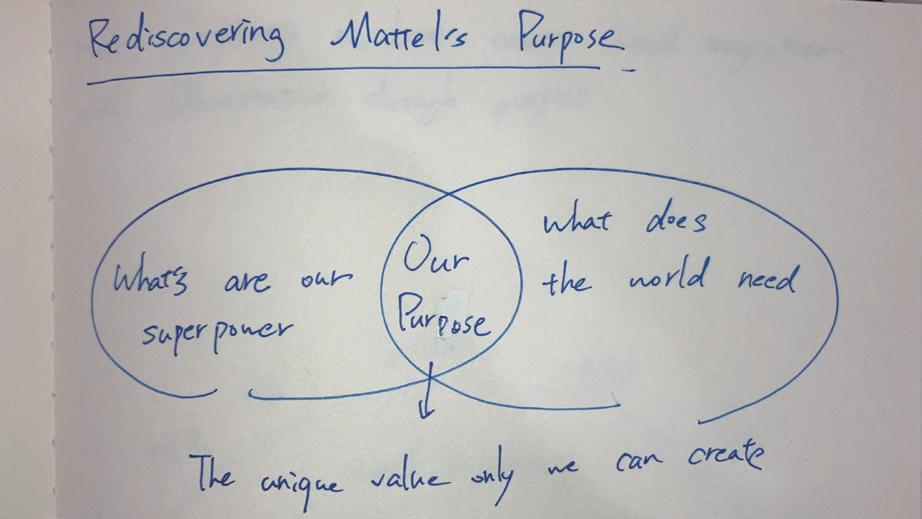 Rediscovering Mattel's Purpose
What's are our
superpower
Our
Purpose
what does
the world need
The unique value only we can create